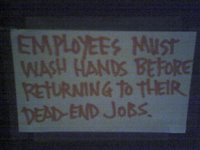 EMPLOYEES MUST
WASH HANDS BEFORE
RETURNING TO THEIR
DEAD-END JOBS.